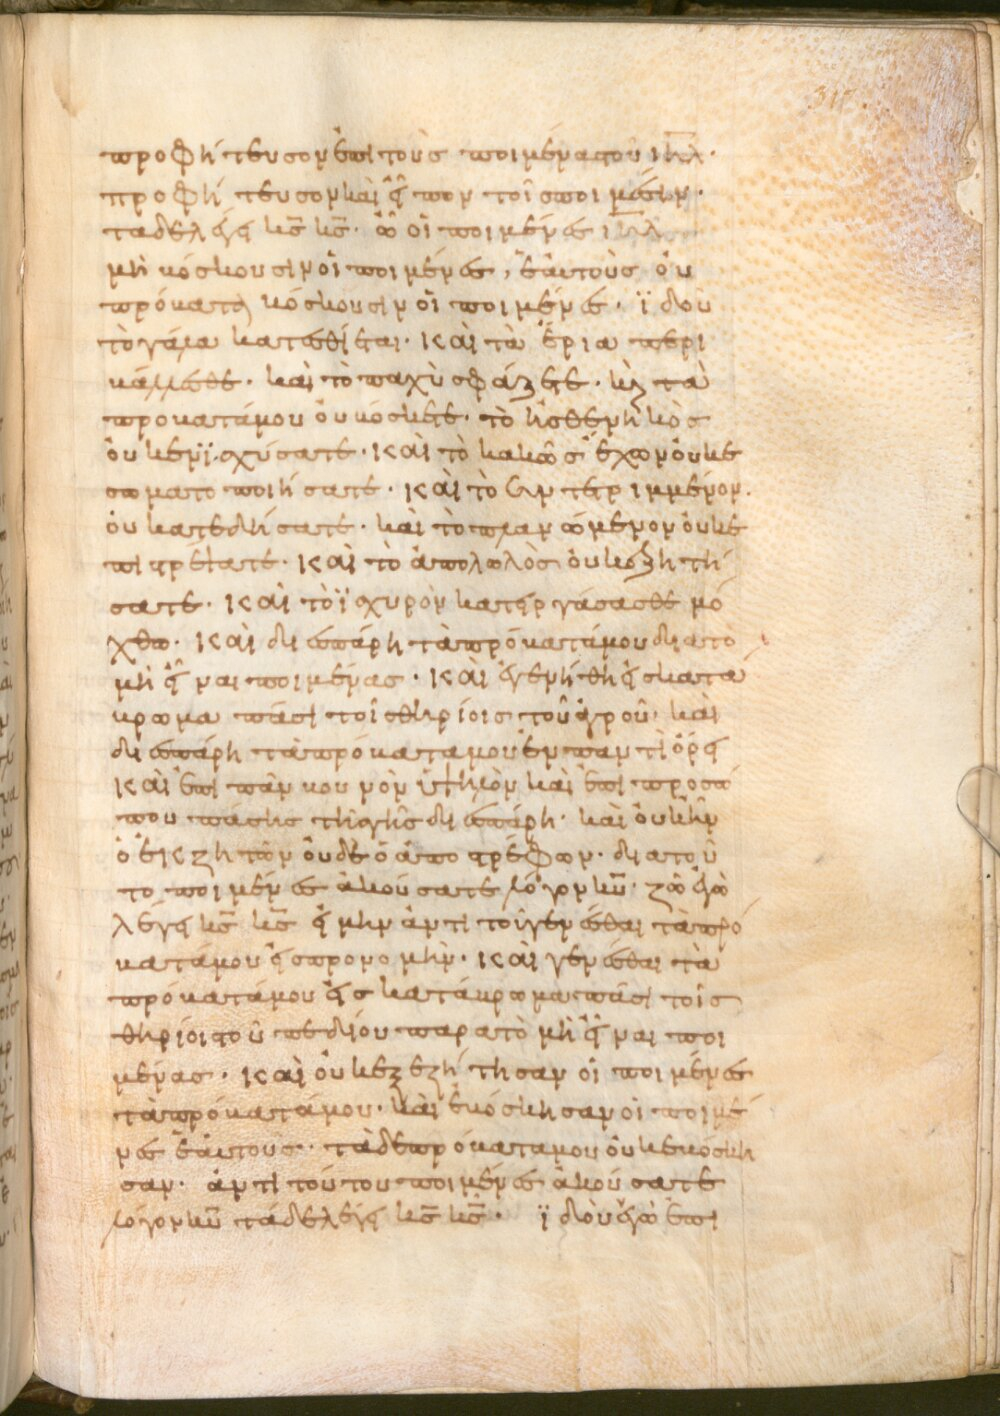 προφήτευσον ἐπὶ τοὺς ποιμένας τοῦ ιηλ·
προφήτευσον καὶ εἶπον τοῖς ποιμέσιν·
τάδε λέγει κς κς· ὦ οἱ ποιμένες ιηλ
μὴ βόσκουσιν οἱ ποιμένες, ἑαυτοὺς οὐ
πρόβατα βόσκουσιν οἱ ποιμένες· ϊδοὺ
τὸ γάλα κατεσθίεται· καὶ τὰ ἔρια περι
βάλλεσθε· καὶ τὸ παχὺ σφάζετε· κὶ τὰ
πρόβατά μου οὐ βόσκετε· τὸ ἠσθενηκὸς
οὐκ ενϊσχύσατε· καὶ τὸ κακῶς ἔχον οὐκ ἐ
σωματοποιήσατε· καὶ τὸ συντετριμμένον
οὐ κατεδήσατε· καὶ τὸ πλανώμενον οὐκ ἐ
πιστρέψατε· καὶ τὸ ἀπολωλὸς οὐκ εζητή
σατε· καὶ τὸ ϊσχυρὸν κατειργάσασθε μό
χθω· καὶ διεσπάρη τὰ πρόβατά μου διατὸ
μὴ εἶναι ποιμένας· καὶ ἐγενήθη εἰς κατά
βρωμα πάσι τοῖς θηρίοις τοῦ ἀγροῦ· καὶ
διεσπάρη τὰ πρόβατα μου ἐν παντὶ ὄρει
καὶ ἐπὶ πὰν βουνὸν ὑψηλὸν καὶ ἐπὶ προσώ
που πάσης τῆς γῆς διεσπάρη· καὶ οὐκ ἦν
ὁ ἐκζητῶν οὐδὲ ὁ ἀποστρέφων· διατοῦ
το ποιμένες ἀκούσατε λόγον κυ· ζῶ ἐγὼ
λέγει κς κς εἰ μὴν ἀντὶ τοῦ γενέσθαι τὰ πρό
βατά μου εἰς προνομὴν· καὶ γενέσθαι τὰ
πρόβατά μου εἰς κατάβρωμα πάσι τοῖς
θηρίοις τοῦ πεδίου παρατὸ μὴ εἶναι ποι
μένας· καὶ οὐκ εξεζήτησαν οἱ ποιμένες
τὰ πρόβατά μου· καὶ ἐβόσκησαν οἱ ποιμέ
νες ἑαυτους· τὰ δὲ πρόβατα μου οὐκ εβόσκη
σαν· ἀντὶ τούτου ποιμένες ἀκούσατε
λόγον κυ τάδε λέγει κς κς· ϊδοὺ ἐγὼ ἐπὶ